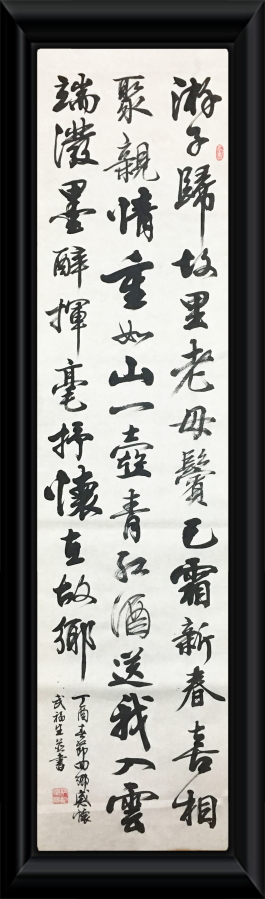 游子歸故里老母鬢已霜新春喜相
聚親情重如山一壺青紅酒送我入雲
端潑墨醉揮毫抒懷在故鄉
丁酉春節回鄉感懷
武福生并書